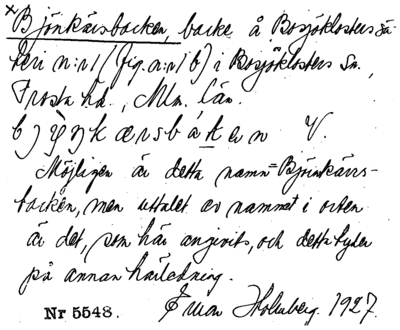 × Bjönkärsbacken, backe å Bosjöklosters sä-
teri n:r 1 (fig. a: n:r 1 b) i Bosjöklosters Sn.,
Frosta hd., Mlm. län.
V.
Möjligen är detta namn = Björnkärrs-
backen, men uttalet av namnet i orten
är det, som här angivits, och detta tyder
på annan härledning.
Nr 5548. Holmberg. 1927.